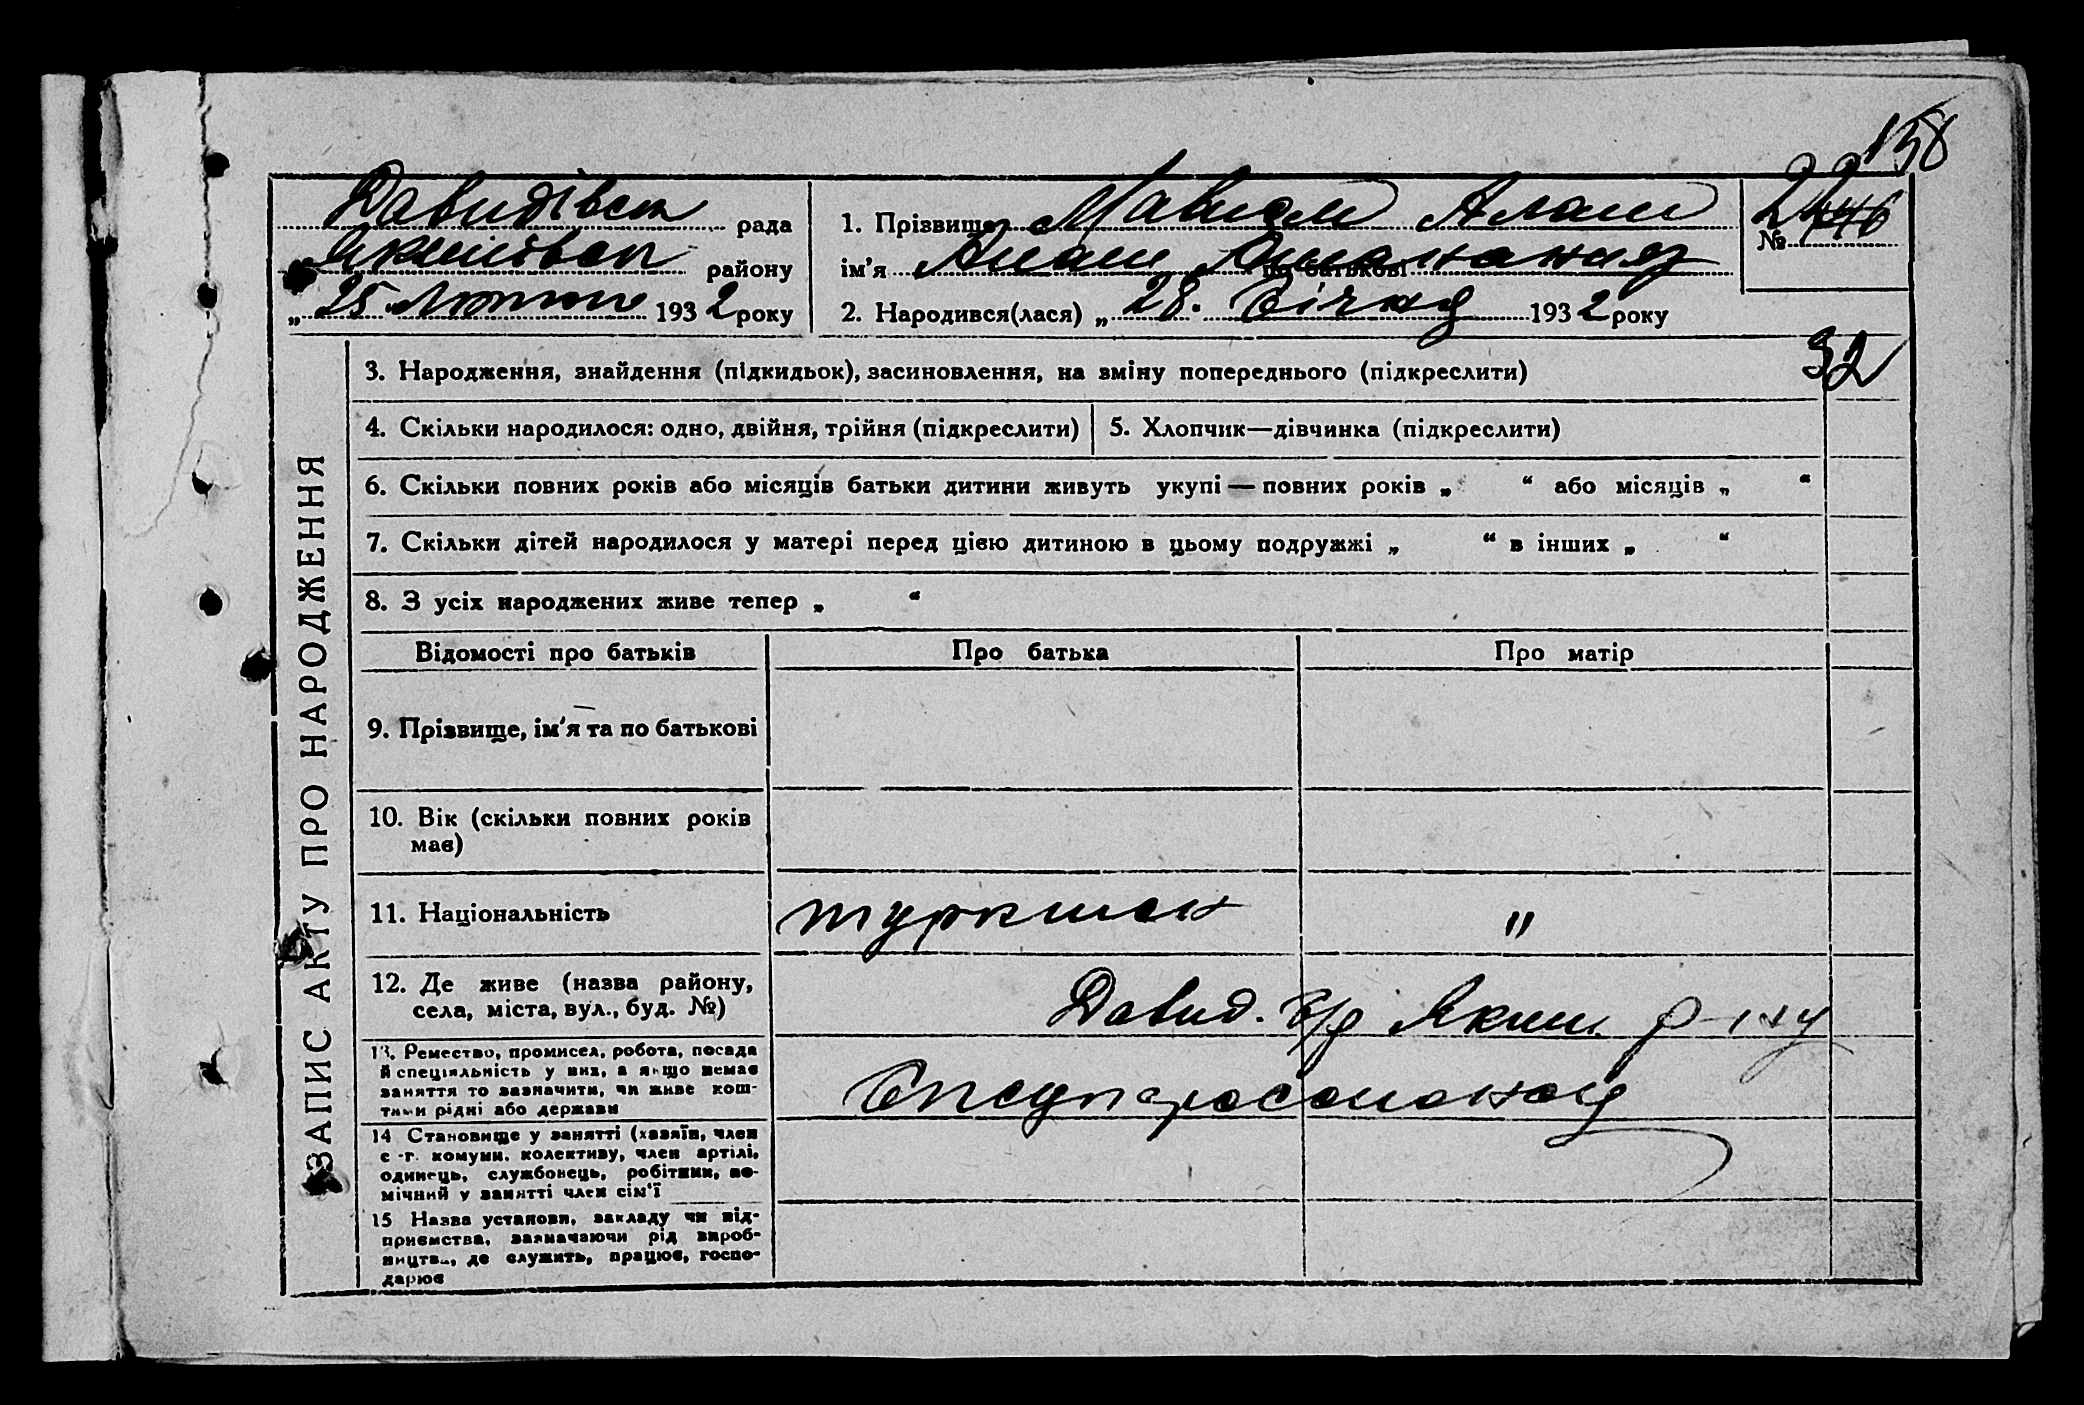 158
22
Давидівск рада
Якимівск району
„ 25 Лютого 1932 року
1. Прізвище Алаш
ім'я Алаш по батькові
№ 146
2. Народився(лася) „ 28. Січня 1932 року
32
ЗАПИС АКТУ ПРО НАРОДЖЕННЯ
3. Народження, знайдення (підкидьок), засиновлення, на зміну попереднього (підкреслити)
4. Скільки народилося: одно, двійня, трійня (підкреслити)
5. Хлопчик—дівчинка (підкреслити)
6. Скільки повних років або місяців батьки дитини живуть укупі — повних років „ “ або місяців „ “
7. Скільки дітей народилося у матері перед цією дитиною в цьому подружжі „ “ в інших „ “
8. З усіх народжених живе тепер „ “
Відомості про батьків Про батька Про матір
9. Прізвище, ім'я та по батькові
10. Вік (скільки повних років
має)
11. Національність туркмен "
12. Де живе (назва району,
села, міста, вул., буд. №)
Давид. с/р Яким. р-ну
13. Ремество, промисел, робота, посада
й спеціяльність у них, а якщо немає
заняття то зазначити, чи живе кош-
тами рідні або держави
14 Становище у занятті (хазяїн, член
с.-г. комуни, колективу, член артілі,
одинець, службонець, робітник, по-
мічний у занятті член сім'ї
15 Назва установи, закладу чи під-
приємства, зазначаючи рід вироб-
ництва, де служить, працює, госпо-
дарює